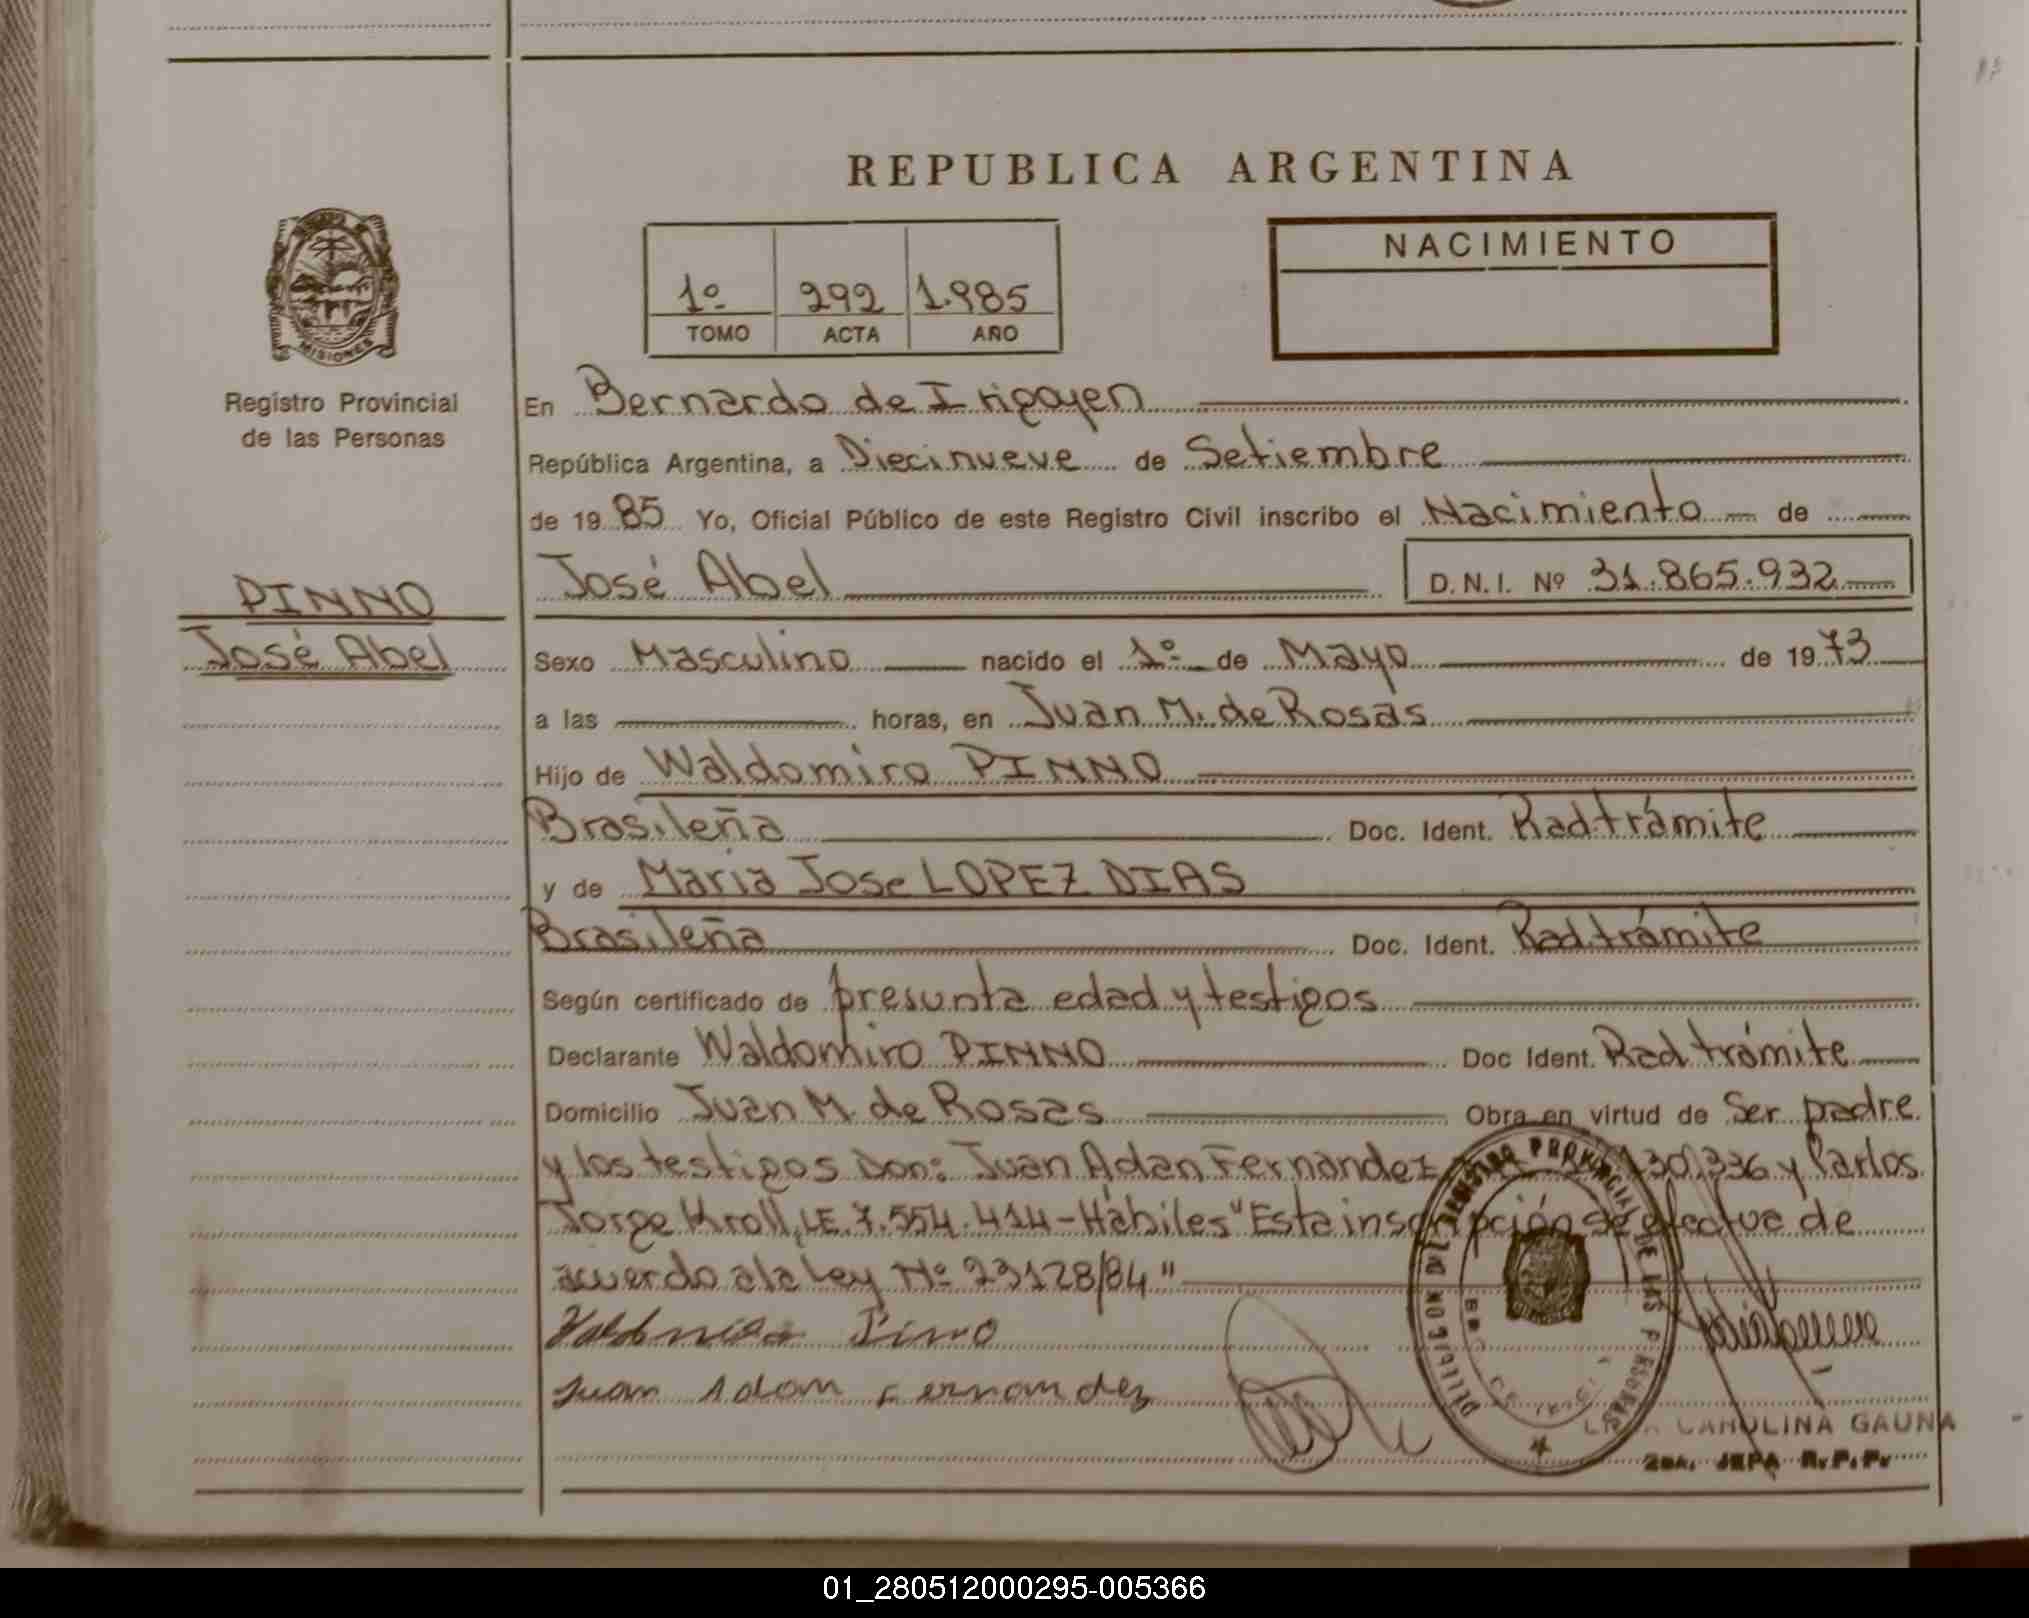 REPUBLICA ARGENTINA
MISIONES
Registro Provincial
de las Personas
1º 292 1.985
TOMO ACTA AÑO
NACIMIENTO
En Bernardo de Irigoyen
República Argentina, a Diecinueve de Setiembre
de 1985 Yo, Oficial Público de este Registro Civil inscribo el Nacimiento de
José Abel D.N.I. Nº 31.865.932
PINNO
José Abel
Sexo Masculino nacido el 1º de Mayo de 1973
a las horas, en Juan M. de Rosas
Hijo de Waldomiro PINNO
Brasileña Doc. Ident. Rad. trámite
y de Maria Jose LOPEZ DIAS
Brasileña Doc. Ident. Rad. trámite
Según certificado de presunta edad y testigos
Declarante Waldomiro PINNO Doc Ident. Rad trámite
Domicilio Juan M. de Rosas Obra en virtud de Ser padre
y los testigos Don: Juan Adan Fernandez 301.336 y Carlos
Jorge Kroll, LE. 7.554.414 - Hábiles "Esta inscripción se efectua de
acuerdo a la ley Nº 23128/84"
Pino
Juan Adan Fernandez
DEL REGISTRO PROVINCIAL DE LAS PERSONAS
CAROLINA GAUNA
2DA. JEFA R.P.P.
01_280512000295-005366